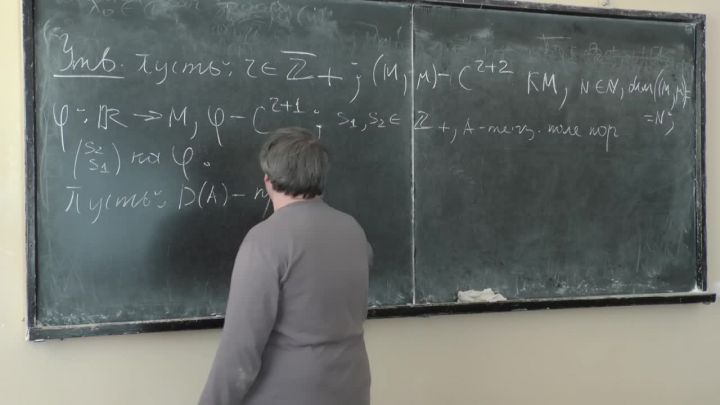 Утв. Пусть: r ∈ Z̄₊; (M, μ) – C^{r+2} КМ, N ∈ ℕ, dim((M, μ)) = N;
φ: ℝ → M, φ – C^{r+1}; s₁, s₂ ∈ Z₊, A – тенз. поле пор
(s₂ s₁) на φ.
Пусть: D(A) –